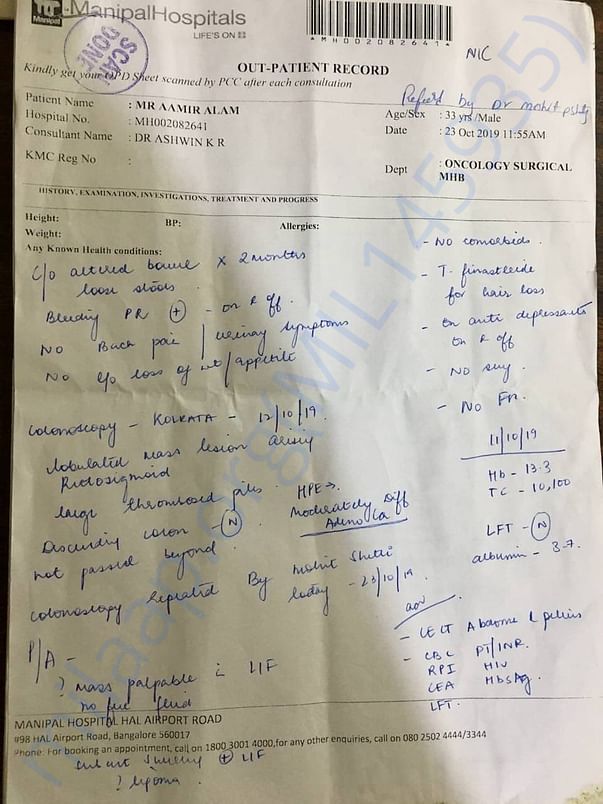 Manipal
ManipalHospitals
LIFE'S ON
*MH002082641*
SCAN DONE
NIC
OUT-PATIENT RECORD
Kindly get your OPD Sheet scanned by PCC after each consultation
by Dr mohit
Patient Name : MR AAMIR ALAM
Age/Sex : 33 yrs /Male
Hospital No. : MH002082641
Date : 23 Oct 2019 11:55AM
Consultant Name : DR ASHWIN K R
KMC Reg No :
Dept : ONCOLOGY SURGICAL MHB
HISTORY, EXAMINATION, INVESTIGATIONS, TREATMENT AND PROGRESS
Height: BP: Allergies:
Weight:
Any Known Health conditions:
c/o altered bowel x 2 months
loose stools
Bleeding PR + - on & off.
No Back pain / urinary symptoms
No c/o loss of wt/appetite
- No comorbids.
- T. finasteride
for hair loss
- on anti depressants
on & off
- No
- No
Colonoscopy - KOLKATA - 12/10/19
lobulated mass lesion
Rectosigmoid
large thrombosed piles.
HPE →
Moderately Diff
Adeno Ca
Descending colon - N
not passed beyond.
Colonoscopy repeated By Mohit
today - 23/10/19.
11/10/19
Hb - 13.3
TC - 10,100
LFT - N
albumin - 3.7.
adv
- CECT Abdomen & pelvis
- CBC PT/INR
RPI HIV
CEA HbSAg.
LFT.
P/A -
? mass palpable in LIF
no free fluid
MANIPAL HOSPITAL HAL AIRPORT ROAD
#98 HAL Airport Road, Bangalore 560017
Phone: For booking an appointment, call on 1800 3001 4000,for any other enquiries, call on 080 2502 4444/3344
swelling + LIF
? lipoma.